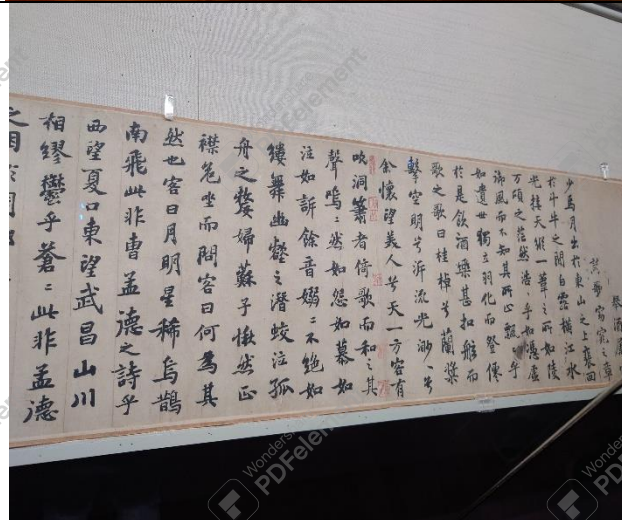 舉酒屬
歌窈窕之章
少焉月出於東山之上裴回
於斗牛之間白露橫江水
光接天縱一葦之所如陵
万頃之茫然浩〻乎如馮虛
御風而不知其所止飄〻乎
如遺世獨立羽化而登僊
於是飲酒樂甚扣舷而
歌之歌曰桂棹兮蘭槳
擊空明兮泝流光渺〻兮
余懷望美人兮天一方客有
吹洞簫者倚歌而和之其
聲嗚〻然如怨如慕如
泣如訴餘音嫋〻不絶如
縷舞幽壑之潛蛟泣孤
舟之嫠婦蘇子愀然正
襟危坐而問客曰何為其
然也客曰月明星稀烏鵲
南飛此非曹孟德之詩乎
西望夏口東望武昌山川
相繆鬱乎蒼〻此非孟德
之困於周郎
Wondershare
PDFelement